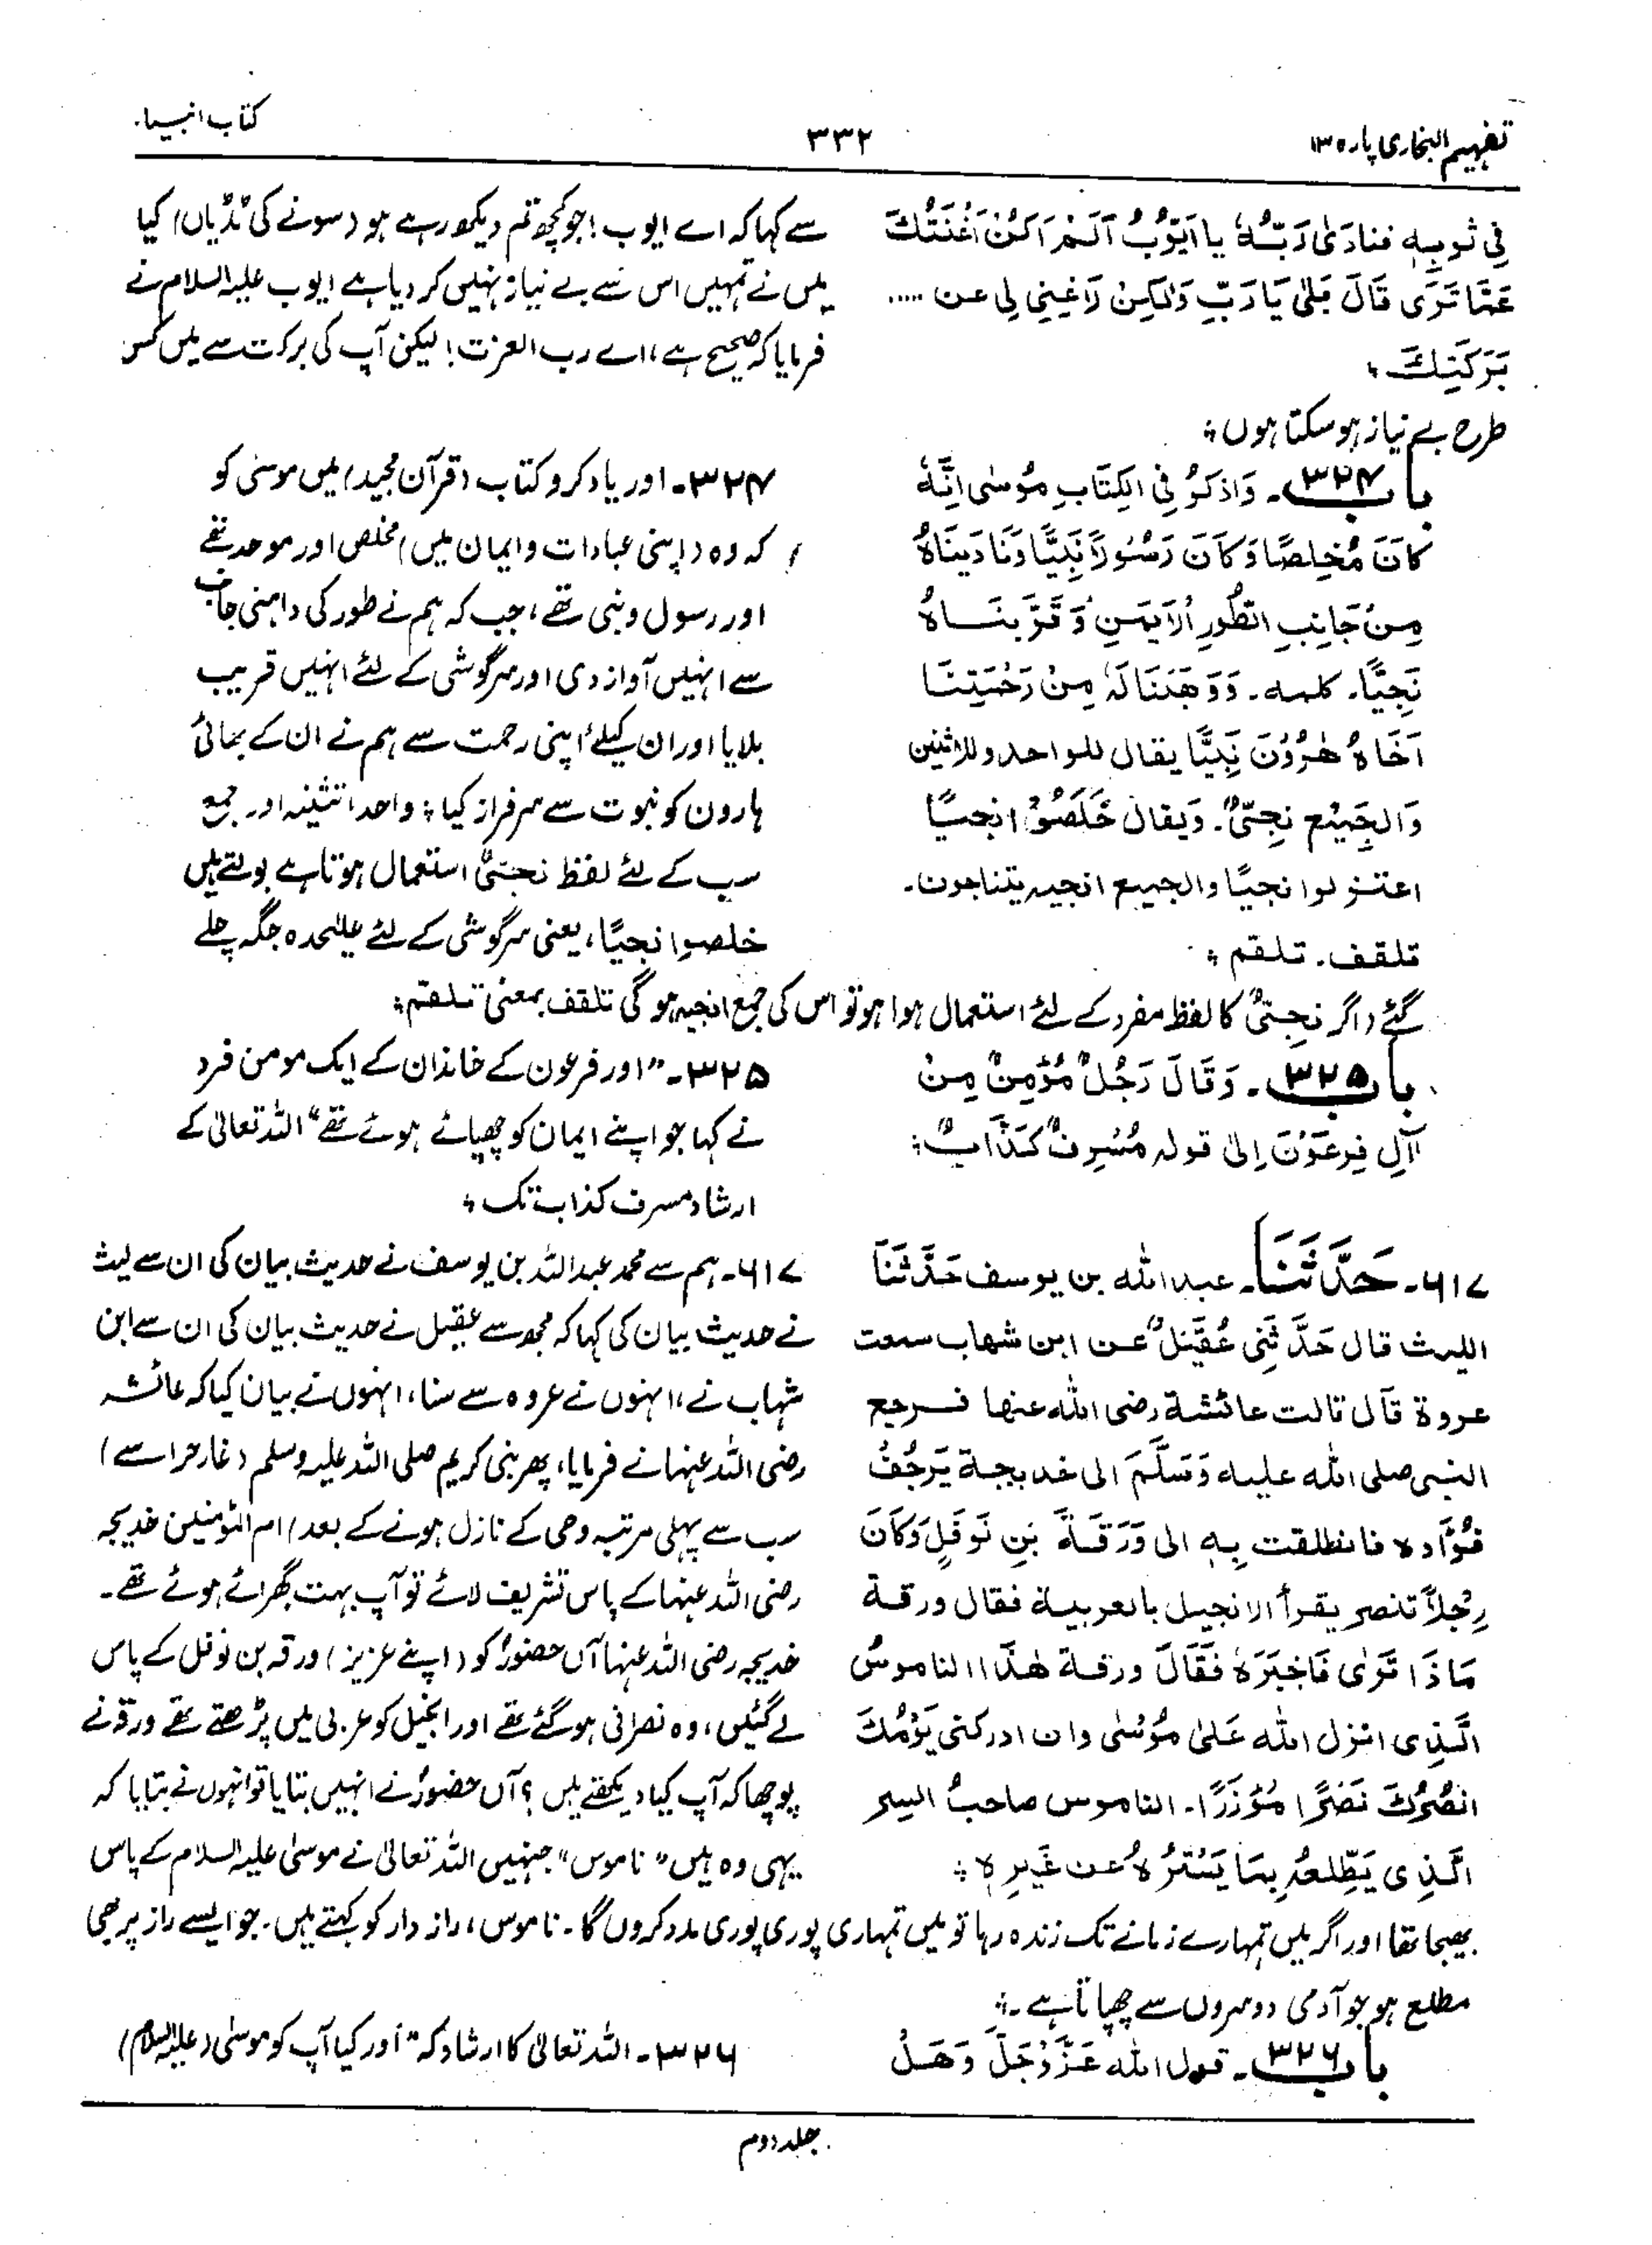 تفہیم البخاری پارہ ۱۳
۳۳۲
کتاب انبیاء
فِي ثَوبِهٖ فنادَىٰ رَبُّهٗ يا اَيُّوْبُ اَلَمْ اَكُنْ اَغْنَيْتُكَ
عَمَّا تَرَى قَالَ بَلىٰ يَا رَبِّ وَلٰكِنْ لَا غِنىٰ لِي عن .....
بَرَكَتِكَ ؛
سے کہا کہ اے ایوب! جو کچھ تم دیکھ رہے ہو (سونے کی ٹڈیاں) کیا
میں نے تمہیں اس سے بے نیاز نہیں کر دیا ہے ایوب علیہ السلام نے
فرمایا کہ صحیح ہے، اے رب العزت! لیکن آپ کی برکت سے میں کس
طرح بے نیاز ہو سکتا ہوں ؛
باب ۳۲۴۔ وَاذكُرْ فِي الكِتَابِ مُوْسٰى اِنَّهٗ
كَانَ مُخْلِصًا وَكَانَ رَسُوْلًا نَّبِيًّا وَنَادَيْنَاهُ
مِنْ جَانِبِ الطُّورِ الْاَيْمَنِ وَقَرَّبْنَاهُ
نَجِيًّا۔ كلمه۔ وَوَهَبْنَا لَهٗ مِنْ رَحْمَتِنَا
اَخَاهُ هٰرُوْنَ نَبِيًّا يقال للواحد وللاثنين
وَالجَمِيْعِ نَجِىٌّ۔ وَيقال خَلَصُوْا نجيًّا
اعتزلوا نجيًّا والجميع انجيه يتناجون۔
تلقف۔ تلقم ؛
۳۲۴۔ اور یاد کرو کتاب (قرآن مجید) میں موسیٰ کو
کہ وہ (اپنی عبادات و ایمان میں) مخلص اور موحد تھے
اور رسول و نبی تھے، جب کہ ہم نے طور کی داہنی جانب
سے انہیں آواز دی اور سرگوشی کے لئے انہیں قریب
بلایا اور ان کیلئے اپنی رحمت سے ہم نے ان کے بھائی
ہارون کو نبوت سے سرفراز کیا ؛ واحد، تثنیہ اور جمع
سب کے لئے لفظ نجیٌّ استعمال ہوتا ہے بولتے ہیں
خلصوا نجیًّا، یعنی سرگوشی کے لئے علیٰحدہ جگہ چلے
گئے (اگر نجیٌّ کا لفظ مفرد کے لئے استعمال ہوا ہو تو اس کی جمع انجیہ ہوگی تلقف بمعنی تلقم ؛
باب ۳۲۵۔ وَقَالَ رَجُلٌ مُؤْمِنٌ مِنْ
آلِ فِرعَوْنَ اِلىٰ قوله مُسْرِفٌ كَذَّابٌ ؛
۳۲۵۔ "اور فرعون کے خاندان کے ایک مومن فرد
نے کہا جو اپنے ایمان کو چھپائے ہوئے تھے" اللہ تعالیٰ کے
ارشاد مسرف کذاب تک ؛
۶۱۷۔ حَدَّثَنَا۔ عبد الله بن يوسف حَدَّثَنَا
الليث قال حَدَّثَنِي عُقَيْلٌ عن ابن شهاب سمعت
عروة قَال قالت عائشة رضى الله عنها فرجع
النبى صلى الله عليه وَسَلَّمَ الى خديجة يَرْجُفُ
فُؤَاده فانطلقت بِهٖ الى وَرَقَةَ بْنِ نَوفَلٍ وَكَانَ
رَجُلًا تنصر يقرأ الانجيل بالعربية فقال ورقة
مَاذَا تَرٰى فَاَخْبَرَهٗ فَقَالَ ورقة هٰذَا الناموسُ
الَّذِى انزل الله عَلىٰ مُوْسٰى وان ادركنى يَوْمُكَ
انصُرْكَ نَصْرًا مُؤَزَّرًا۔ الناموس صاحبُ السر
الَّذِى يَطَّلِعُهٗ بِمَا يَسْتُرُهٗ عن غَيرِهٖ ؛
۶۱۷۔ ہم سے محمد عبد اللہ بن یوسف نے حدیث بیان کی ان سے لیث
نے حدیث بیان کی کہا کہ مجھ سے عقیل نے حدیث بیان کی ان سے ابن
شہاب نے، انہوں نے عروہ سے سنا، انہوں نے بیان کیا کہ عائشہ
رضی اللہ عنہا نے فرمایا، پھر نبی کریم صلی اللہ علیہ وسلم (غار حرا سے)
سب سے پہلی مرتبہ وحی کے نازل ہونے کے بعد) ام المؤمنین خدیجہ
رضی اللہ عنہا کے پاس تشریف لائے تو آپ بہت گھبرائے ہوئے تھے۔
خدیجہ رضی اللہ عنہا آں حضورؐ کو (اپنے عزیز) ورقہ بن نوفل کے پاس
لے گئیں، وہ نصرانی ہو گئے تھے اور انجیل کو عربی میں پڑھتے تھے ورقہ نے
پوچھا کہ آپ کیا دیکھتے ہیں؟ آں حضورؐ نے انہیں بتایا تو انہوں نے بتایا کہ
یہی وہ ہیں "ناموس" جنہیں اللہ تعالیٰ نے موسیٰ علیہ السلام کے پاس
بھیجا تھا اور اگر میں تمہارے زمانے تک زندہ رہا تو میں تمہاری پوری پوری مدد کروں گا۔ ناموس، راز دار کو کہتے ہیں۔ جو ایسے راز پر بھی
مطلع ہو جو آدمی دوسروں سے چھپاتا ہے۔ ؛
باب ۳۲۶۔ قول الله عَزَّوَجَلَّ وَهَلْ
۳۲۶۔ اللہ تعالیٰ کا ارشاد کہ "اور کیا آپ کو موسیٰ (علیہ السلام)
جلد دوم